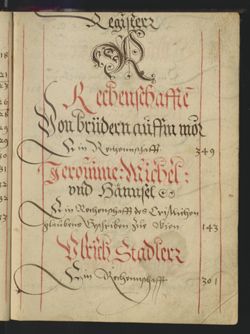 Registerr
R
Rechenschafften
Von brüdern auffin mör
Ein Rechennschafft 349
Jeronime: Michel:
vnd Hännsel
Ein Rechenschafft des Cristlichen
glaubens Gschriben zue Wien 143
Vlrich Stadlerr
Ein Rechennschafft 301